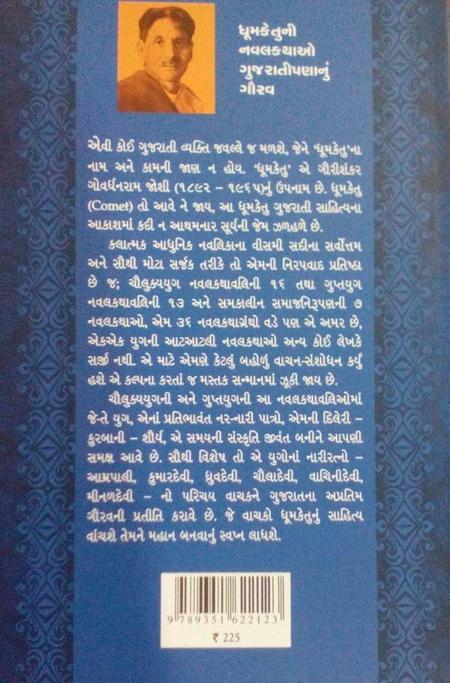 ધૂમકેતુની
નવલકથાઓ
ગુજરાતીપણાનું
ગૌરવ
એવી કોઈ ગુજરાતી વ્યક્તિ જવલ્લે જ મળશે, જેને ‘ધૂમકેતુ’ના
નામ અને કામની જાણ ન હોય. ‘ધૂમકેતુ’ એ ગૌરીશંકર
ગોવર્ધનરામ જોશી (૧૮૯૨ – ૧૯૬૫)નું ઉપનામ છે. ધૂમકેતુ
(Comet) તો આવે ને જાય, આ ધૂમકેતુ ગુજરાતી સાહિત્યના
આકાશમાં કદી ન આથમનાર સૂર્યની જેમ ઝળહળે છે.
કલાત્મક આધુનિક નવલિકાના વીસમી સદીના સર્વોત્તમ
અને સૌથી મોટા સર્જક તરીકે તો એમની નિરપવાદ પ્રતિષ્ઠા
છે જ; ચૌલુક્યયુગ નવલકથાવલિની ૧૬ તથા ગુપ્તયુગ
નવલકથાવલિની ૧૩ અને સમકાલીન સમાજનિરૂપણની ૭
નવલકથાઓ, એમ ૩૬ નવલકથાગ્રંથો વડે પણ એ અમર છે,
એકએક યુગની આટઆટલી નવલકથાઓ અન્ય કોઈ લેખકે
સર્જી નથી. એ માટે એમણે કેટલું બહોળું વાચન-સંશોધન કર્યું
હશે એ કલ્પના કરતાં જ મસ્તક સન્માનમાં ઝૂકી જાય છે.
ચૌલુક્યયુગની અને ગુપ્તયુગની આ નવલકથાવલિઓમાં
જે-તે યુગ, એનાં પ્રતિભાવંત નર-નારી પાત્રો, એમની દિલેરી –
કુરબાની – શૌર્ય, એ સમયની સંસ્કૃતિ જીવંત બનીને આપણી
સમક્ષ આવે છે. સૌથી વિશેષ તો એ યુગોનાં નારીરત્નો –
આમ્રપાલી, કુમારદેવી, ધ્રુવદેવી, ચૌલાદેવી, વાચિનીદેવી,
મીનળદેવી – નો પરિચય વાચકને ગુજરાતના અપ્રતિમ
ગૌરવની પ્રતીતિ કરાવે છે. જે વાચકો ધૂમકેતુનું સાહિત્ય
વાંચશે તેમને મહાન બનવાનું સ્વપ્ન લાધશે.
9 789351 622123
₹ 225